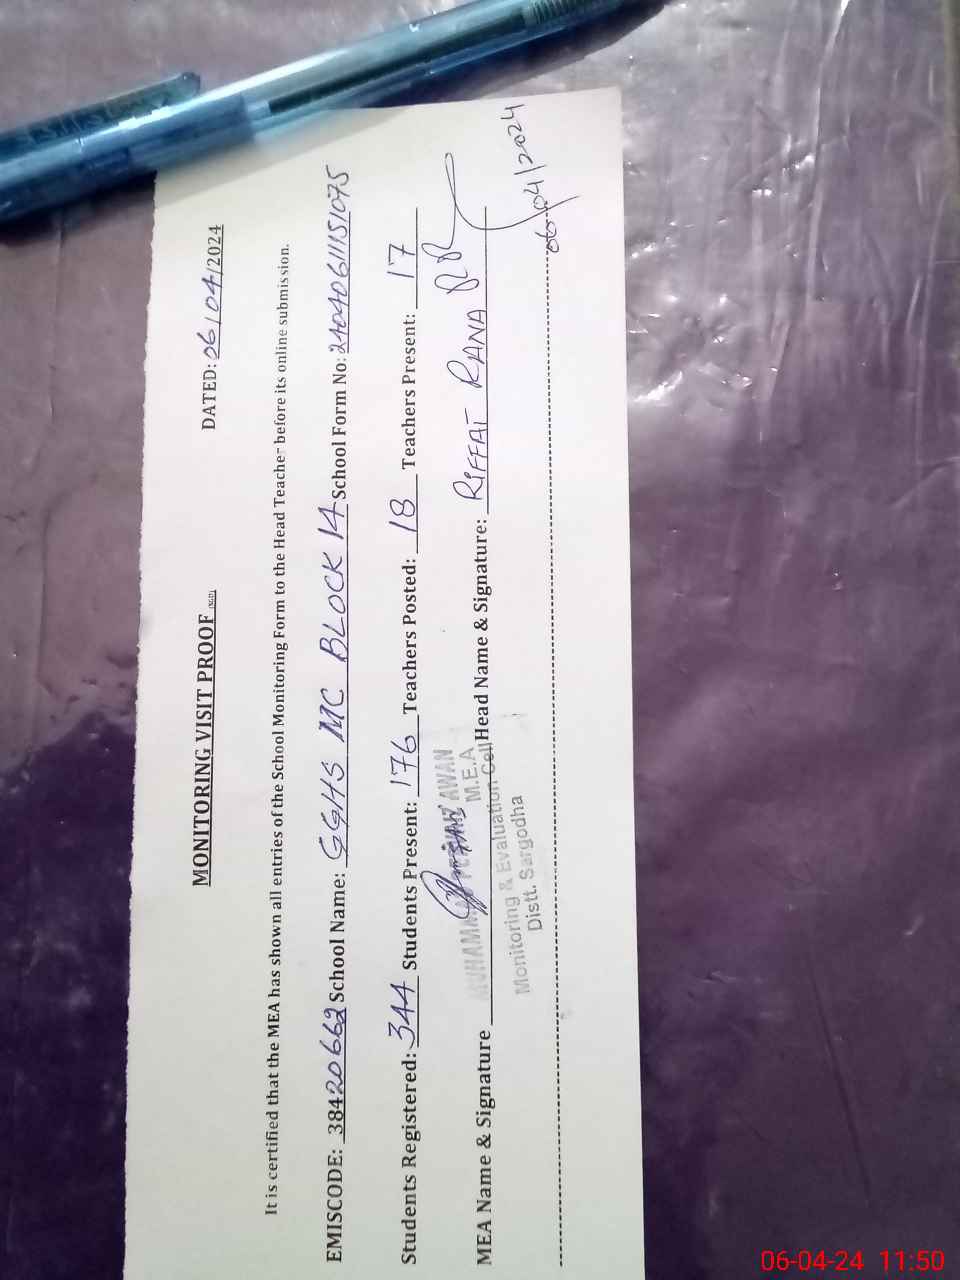 MONITORING VISIT PROOF
DATED: 06/04/2024
It is certified that the MEA has shown all entries of the School Monitoring Form to the Head Teacher before its online submission.
EMISCODE: 38420662 School Name: GGHS MC BLOCK 14 School Form No: 24040611151075
Students Registered: 344 Students Present: 176 Teachers Posted: 18 Teachers Present: 17
MEA Name & Signature Head Name & Signature: RIFFAT RANA
MUHAMMAD AWAN
M.E.A
Monitoring & Evaluation Cell
Distt. Sargodha
06/04/2024
06-04-24 11:50